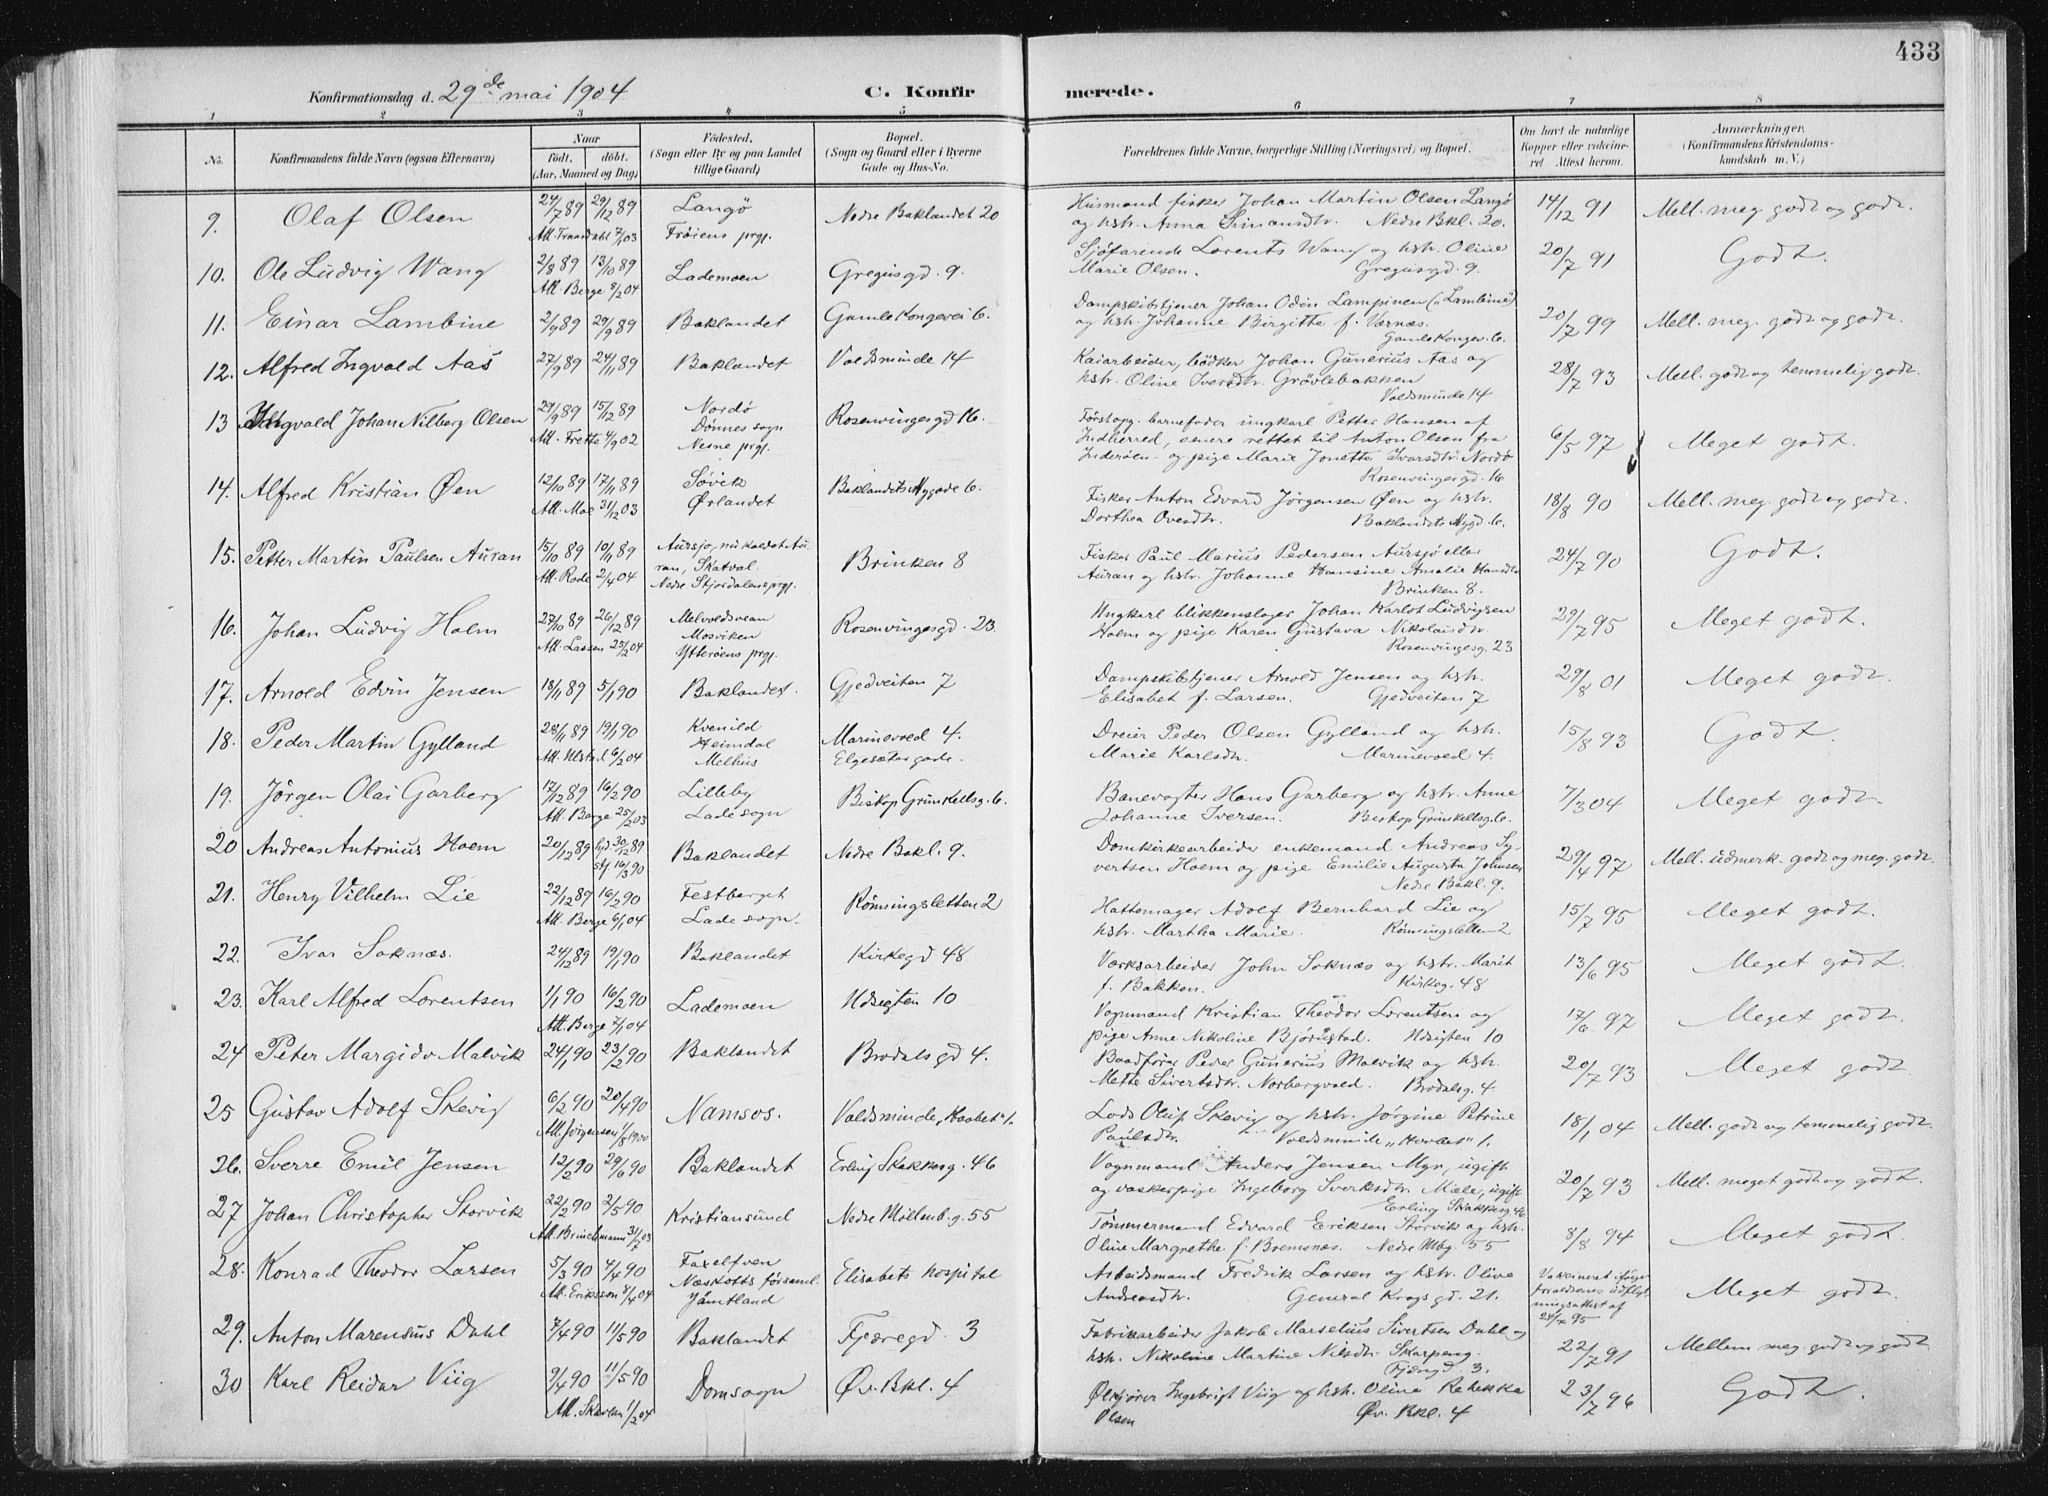 433
Konfirmationsdag d. 29de mai 1904
C. Konfirmerede.
1 2 3 4 5 6 7 8
No. Konfirmandens fulde Navn (ogsaa Efternavn) Naar født. døbt. (Aar, Maaned og Dag) Fødested. (Sogn eller By og paa Landet tillige Gaard) Bopæl. (Sogn og Gaard eller i Byerne Gade og Hus-No. Forældrenes fulde Navne, borgerlige Stilling (Næringsvei) og Bopæl. Om havt de naturlige Kopper eller vakcineret Attest herom. Anmærkninger. (Konfirmandens Kristendomskundskab m. V.)
9. Olaf Olsen 24/7 89 29/12 89 Langø Nedre Baklandet 20 Husmand fisker Johan Martin Olsen Langø 14/12 91 Mell. meg. godt og godt.
Att. Traasdahl 7/1 03 Frøiens prgj. og hstr. Anna Simonsdtr. Nedre Bkl. 20.
10. Ole Ludvig Wang 2/8 89 13/10 89 Lademoen Gregusgd. 9. Sjøfarende Lorents Wang og hstr. Oline 20/7 91 Godt.
Att. Berge 8/2 04 Marie Olsen. Gregusgd. 9.
11. Einar Lambine 2/9 89 29/9 89 Baklandet Gamle Kongevei 6. Dampskibstjener Johan Odin Lampinen (" Lambine) 20/7 99 Mell. meg. godt og godt.
og hstr. Johanne Birgitte f. Værnes. Gamle Kongev. 6.
12. Alfred Ingvald Aas 27/9 89 24/11 89 Baklandet Voldsminde 14 Kaiarbeider, bødker Johan Gunerius Aas og 28/7 93 Mell. godt og temmelig godt.
hstr. Oline Iversdtr. Grøvlebakken
Voldsminde 14
13 Ingvald Johan Nilberg Olsen 29/9 89 15/12 89 Nordø Rosenvingesgd 16. Førstopg. barnefader ungkarl Petter Hansen af 6/5 97 Meget godt.
Att. Frette 4/9 02 Dønnes sogn Indherred, senere rettet til Anton Olsen fra
Nesne prgj. Inderøen - og pige Marie Jonette Ivarsdtr. Nordø
Rosenvingesgd. 16
14. Alfred Kristian Øen 12/10 89 17/11 89 Søvik Baklandets Nygade 6. Fisker Anton Edvard Jørgensen Øen og hstr. 18/8 90 Mell. meg. godt og godt.
Att. Moe 31/12 03 Ørlandet Dorthea Ovesdtr. Baklandets Nygd. 6.
15. Petter Martin Paulsen Auran 15/10 89 10/11 89 Aursjø, nu kaldet Au Brinken 8 Fisker Paul Marius Pedersen Aursjø eller 24/7 90 Godt.
Att. Rode 2/4 04 ran, Skatval. Auran og hstr. Johanne Hansine Amalie Hansdtr
Nedre Stjørdalens prgj. Brinken 8.
16. Johan Ludvig Holm 27/10 89 26/12 89 Melvoldsvean Rosenvingesgd. 23. Ungkarl blikkenslager Johan Karlot Ludvigsen 29/7 95 Meget godt.
Att. Lassen 25/2 04 Mosviken Holm og pige Karen Gustava Nikolaisdtr.
Ytterøens prgj. Rosenvingesg. 23
17. Arnold Edvin Jensen 18/11 89 5/1 90 Baklandet. Gjedveiten 7 Dampskibtjener Arnold Jensen og hstr. 29/8 01 Meget godt.
Elisabet f. Larsen. Gjedveiten 7
18. Peder Martin Gylland 28/11 89 19/1 90 Kvenild Marinevold 4. Dreier Peder Olsen Gylland og hstr. 15/8 93 Godt.
Att. Ulstad 6/2 04 Heimdal Elgesætergade. Marie Karlsdtr. Marinevold 4.
Melhus
19. Jørgen Olai Garberg 17/12 89 16/2 90 Lilleby Biskop Grimkellsg. 6. Banevogter Hans Garberg og hstr. Anne 7/3 04 Meget godt.
Att. Berge 25/2 03 Lade sogn Johanne Iversen. Biskop Grimkellsg. 6.
20 Andreas Antonius Holm 20/12 89 hjd. 30/12 89 Baklandet Nedre Bakl. 9. Domkirkearbeider enkemand Andreas Sy- 29/4 97 Mell. udmerk. godt og meg. godt.
stf 16/3 90 vertsen Holm og pige Emilie Augusta Johnsen
Nedre Bakl. 9.
21. Henry Vilhelm Lie 22/12 89 16/2 90 Festberget Rønningsletten 2 Hattemager Adolf Bernhard Lie og 15/7 95 Meget godt.
Att. Berge 6/1 04 Lade sogn. hstr. Martha Marie. Rønningsletten 2
22. Ivar Soknæs. 24/12 89 19/1 90 Baklandet Kirkegd 48 Værksarbeider John Soknæs og hstr. Marit 13/6 95 Meget godt.
f. Bakken. Kirkeg. 48
23. Karl Alfred Lorentsen 1/1 90 16/2 90 Lademoen Udsigten 10 Vognmand Kristian Theodor Lorentsen og 17/6 97 Meget godt.
Att. Berge 7/1 04 pige Anne Nikoline Bjørnstad. Udsigten 10
24 Peter Margido Malvik 24/1 90 23/2 90 Baklandet Brodalsgd 4. Baadfører Peder Gunerius Malvik og hstr. 20/7 93 Meget godt.
Mette Sivertsdtr. Norbergvold. Brodalsg. 4.
25 Gustav Adolf Skevig 6/2 90 20/4 90 Namsos. Voldsminde, "Haabet" 1. Lods Oluf Skevig og hstr. Jørgine Petrine 18/1 04 Mell. godt og temmelig godt.
Att. Jørgensen 1/8 1900 Paulsdtr. Voldsminde "Haabet" 1.
26. Sverre Emil Jensen 12/2 90 29/6 90 Baklandet Erling Skakkesg. 46 Vognmand Anders Jensen Myr, ugift 20/7 93 Mell. meget godt og godt.
og vaskerpige Ingeborg Sverksdtr. Mæle, ugift
Erling Skakkesg. 46
27 Johan Christopher Storvik 22/2 90 2/5 90 Kristiansund Nedre Møllenb.g. 55 Tømmermand Edvard Eriksen Storvik og hstr. 8/8 94 Meget godt.
Att. Brinchmann 31/7 03 Oline Margrethe f. Bremsnes. Nedre Mbg. 55
28. Konrad Theodor Larsen 5/3 90 4/4 90 Faxelfven Elisabets hospital Arbeidsmand Fredrik Larsen og hstr. Olive Vakcineret ifølge Meget godt.
Att. Eriksson 8/4 04 Næskotts församl. Andreasdtr. General Krogsgd. 21. forældrenes udflyt
Jämtland ningsattest af
24/7 95
29. Anton Marensius Dahl 7/4 90 11/5 90 Baklandet Fjæregd. 3 Fabrikarbeider Jakob Marselius Sivertsen Dahl og 22/7 91 Mellem meg. godt og godt
hstr. Nikoline Martine Nilsdtr. Skarpeng.
Fjæregd. 3.
30 Karl Reidar Viig 9/4 90 11/5 90 Domsogn Øv. Bkl. 4 Ølkjører Ingebrigt Viig og hstr. Oline Rebekka 23/7 96 Godt.
Att. Skavlan 1/2 04 Olsen Øv. Bkl. 4